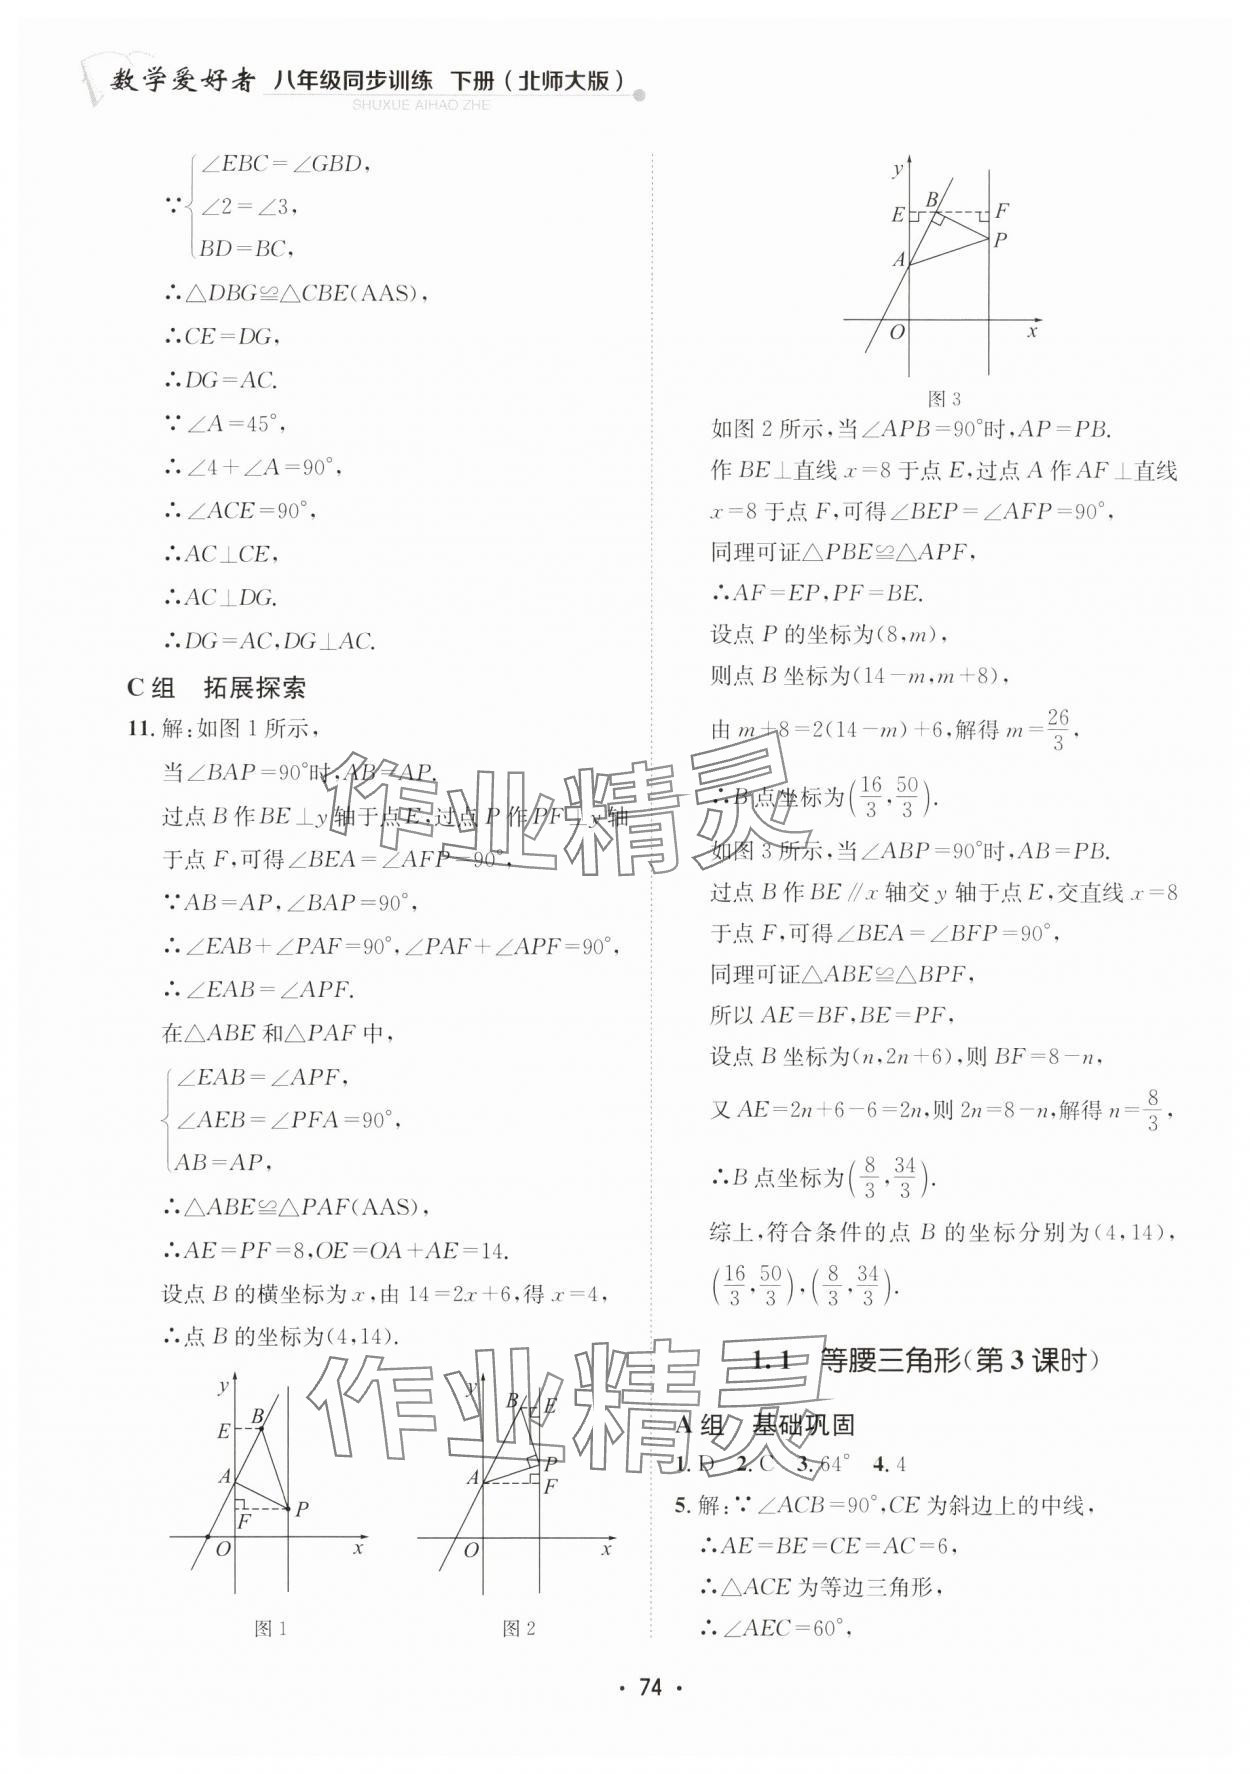 数学爱好者 八年级同步训练 下册（北师大版）
SHUXUE AIHAO ZHE
∵{∠EBC=∠GBD,
∠2=∠3,
BD=BC,
∴△DBG≌△CBE(AAS),
∴CE=DG,
∴DG=AC.
∵∠A=45°,
∴∠4+∠A=90°,
∴∠ACE=90°,
∴AC⊥CE,
∴AC⊥DG.
∴DG=AC,DG⊥AC.
C组 拓展探索
11.解:如图1所示,
当∠BAP=90°时,AB=AP.
过点B作BE⊥y轴于点E,过点P作PF⊥y轴
于点F,可得∠BEA=∠AFP=90°,
∵AB=AP,∠BAP=90°,
∴∠EAB+∠PAF=90°,∠PAF+∠APF=90°,
∴∠EAB=∠APF.
在△ABE和△PAF中,
{∠EAB=∠APF,
∠AEB=∠PFA=90°,
AB=AP,
∴△ABE≌△PAF(AAS),
∴AE=PF=8,OE=OA+AE=14.
设点B的横坐标为x,由14=2x+6,得x=4,
∴点B的坐标为(4,14).
y
E
B
A
F
P
O
x
图1
y
B
E
P
A
F
O
x
图2
y
B
E
F
P
A
O
x
图3
如图2所示,当∠APB=90°时,AP=PB.
作BE⊥直线x=8于点E,过点A作AF⊥直线
x=8于点F,可得∠BEP=∠AFP=90°,
同理可证△PBE≌△APF,
∴AF=EP,PF=BE.
设点P的坐标为(8,m),
则点B坐标为(14-m,m+8),
由m+8=2(14-m)+6,解得m=26/3,
∴B点坐标为(16/3,50/3).
如图3所示,当∠ABP=90°时,AB=PB.
过点B作BE∥x轴交y轴于点E,交直线x=8
于点F,可得∠BEA=∠BFP=90°,
同理可证△ABE≌△BPF,
所以AE=BF,BE=PF,
设点B坐标为(n,2n+6),则BF=8-n,
又AE=2n+6-6=2n,则2n=8-n,解得n=8/3,
∴B点坐标为(8/3,34/3).
综上,符合条件的点B的坐标分别为(4,14),
(16/3,50/3),(8/3,34/3).
1.1 等腰三角形(第3课时)
A组 基础巩固
1.D 2.C 3.64° 4.4
5.解:∵∠ACB=90°,CE为斜边上的中线,
∴AE=BE=CE=AC=6,
∴△ACE为等边三角形,
∴∠AEC=60°,
作业精灵
作业精灵
·74·